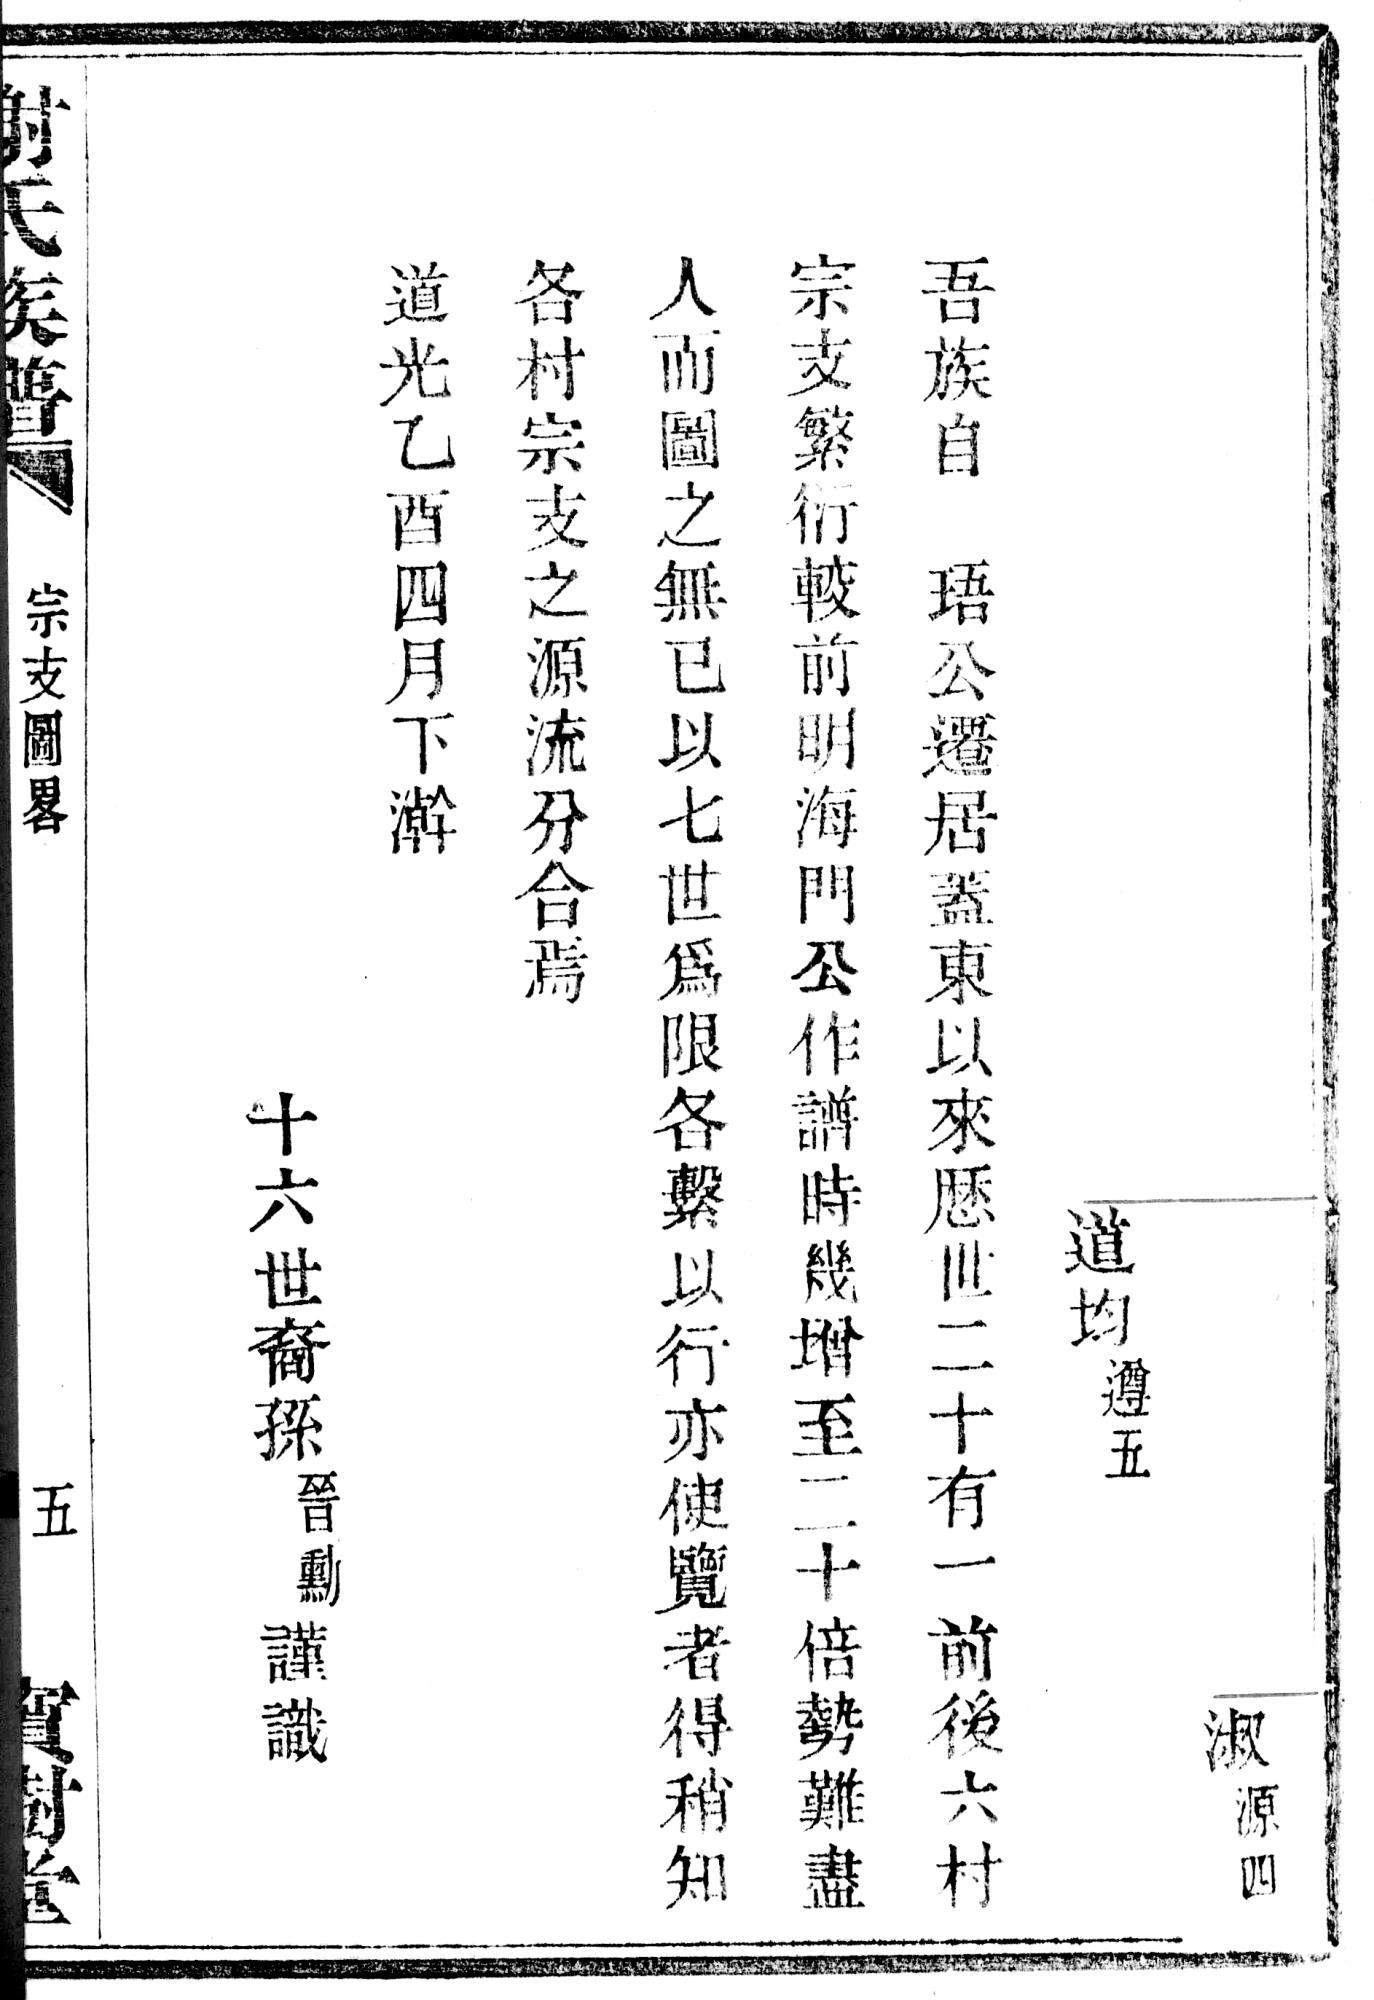 淑源四
道均遵五
吾族自　珸公遷居蓋東以來歷世二十有一前後六村
宗支繁衍較前明海門公作譜時幾增至二十倍勢難盡
人而圖之無已以七世爲限各繫以行亦使覽者得稍知
各村宗支之源流分合焉
道光乙酉四月下澣
十六世裔孫晉勳謹識
謝氏族譜　宗支圖畧　五　寶樹堂